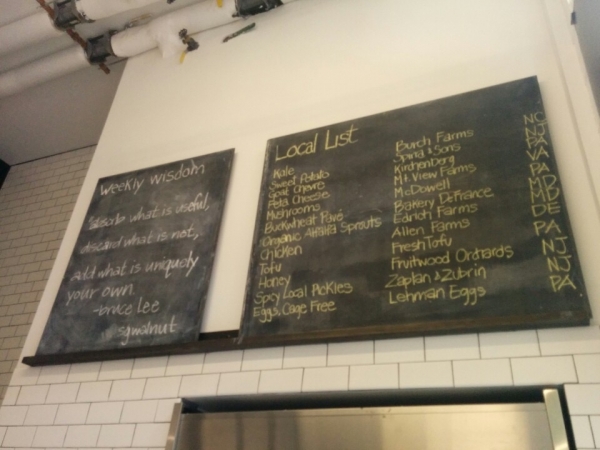 Weekly wisdom
"absorb what is useful,
discard what is not,
Add what is uniquely
your own
-bruce lee
sgwalnut
Local List
Kale Burch Farms NC
Sweet Potato Spina & Sons NJ
Goat Chevre Kirchenberg PA
Feta Cheese Mt View Farms VA
Mushrooms McDowell PA
Buckwheat Pavé Bakery DeFrance MD
Organic Alfalfa Sprouts Edrich Farms MD
Chicken Allen Farms DE
Tofu Fresh Tofu PA
Honey Fruitwood Orchards NJ
Spicy Local Pickles Zaplan & Zubrin NJ
Eggs, Cage Free Lehman Eggs PA